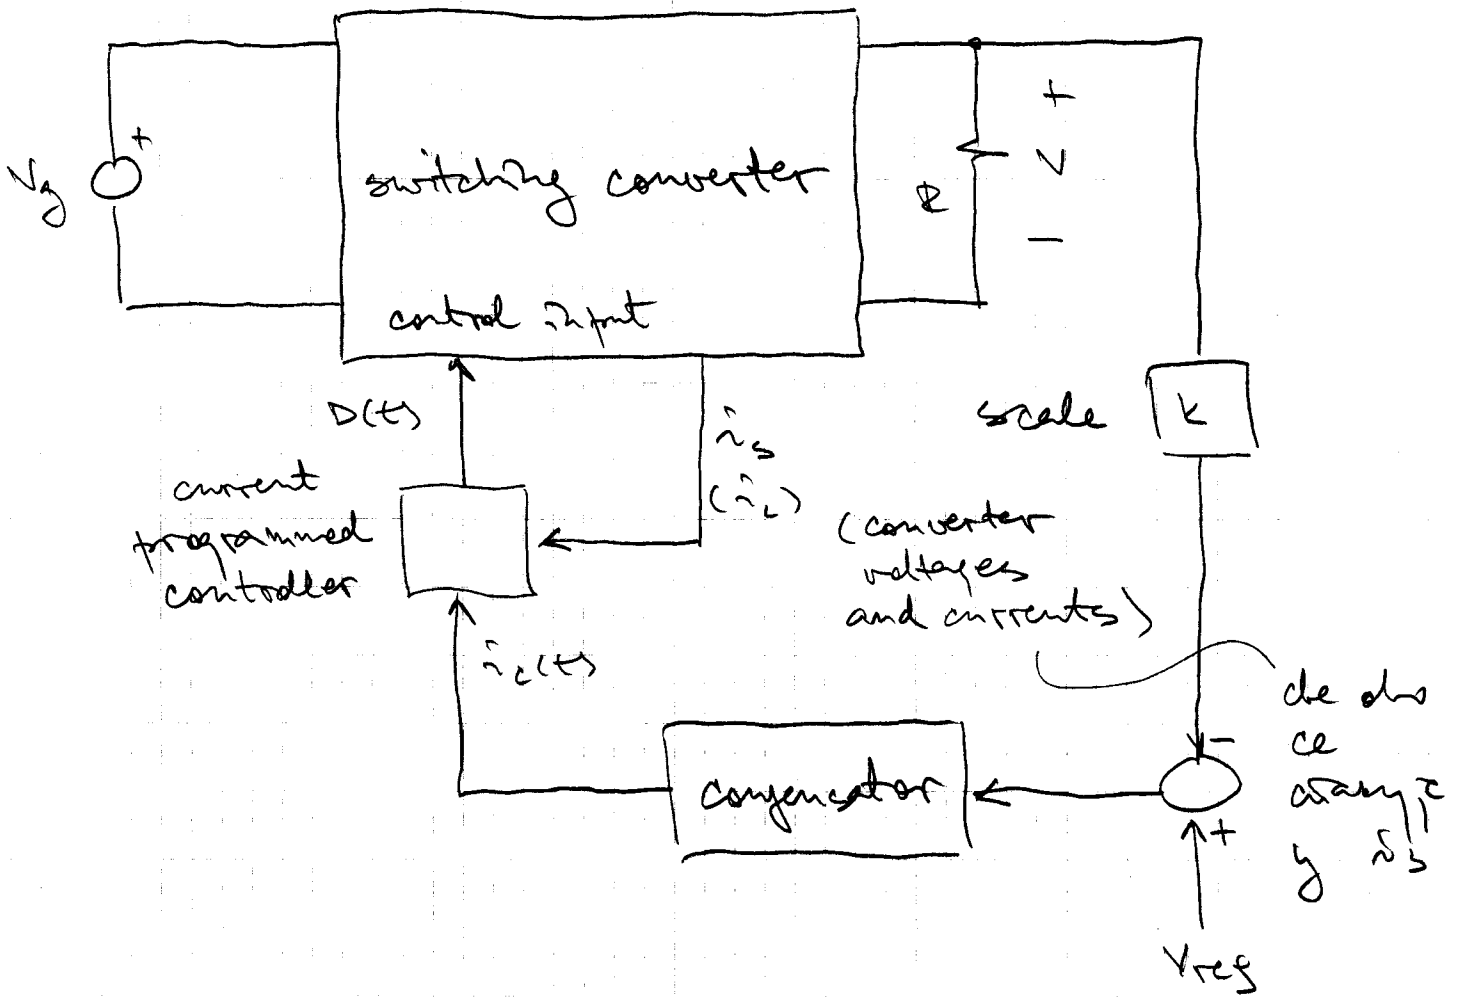 switching converter
Vg
+
+
V
−
R
control input
D(t)
is
(iL)
scale
k
current
programmed
controller
(converter
voltages
and currents)
ic(t)
−
compensator
+
Vref